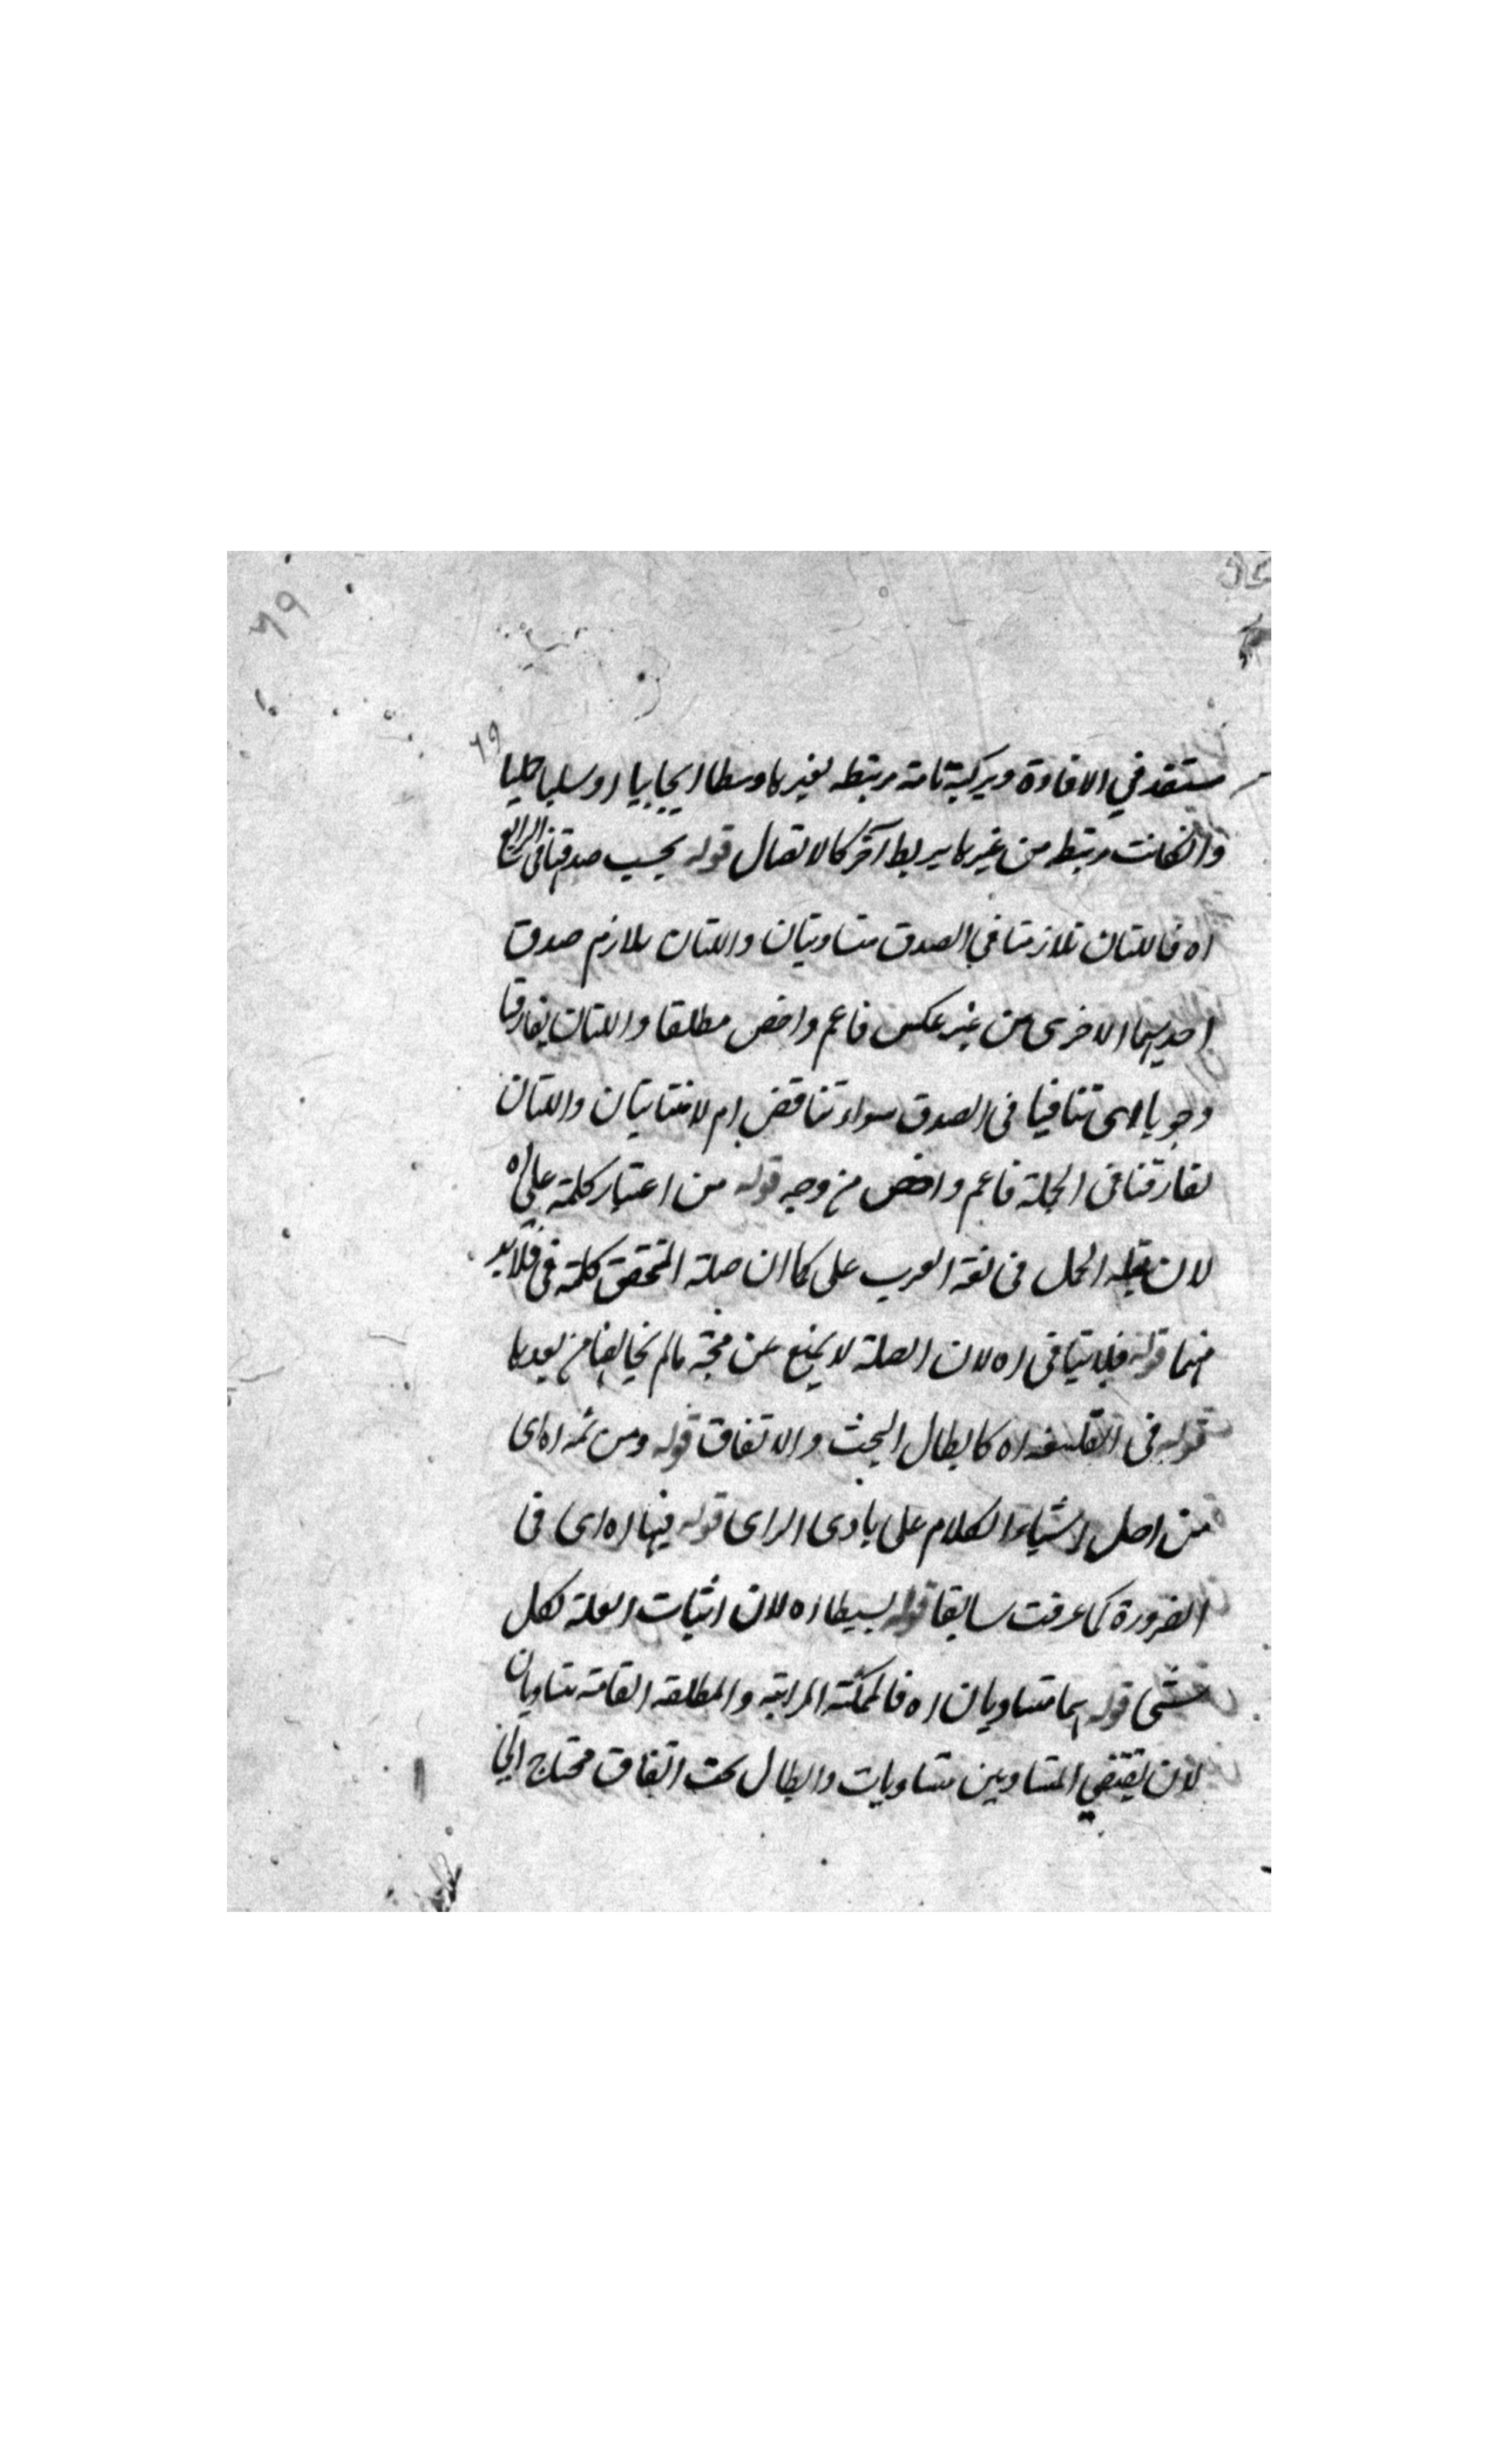 ٦٩
٦٩
مستقد في الافادة وبركية تامة مرتبطه لغيرها وسطا ايجابيا او سلبا حليا
وانكانت مرتبطه من غيرها بربط آخر كالاتصال قوله بحسب صدقها في
اه فاللتان تلازمتا في الصدق متساويتان واللتان تلازم صدق
احديهما الاخرى من غير عكس فاعم واخص مطلقا واللتان تفارقتا
وجوبا اى تنافيا فى الصدق سواء تناقض ام لا متباينتان واللتان
تفارقتا فى الجملة فاعم واخص من وجه قوله من اعتبار كلمة على اه
لان صلة الحمل فى لغة العرب على كما ان صلة التحقق كلمة فى فلابد
منهما قوله فلا ينافى اه لان الصلة لا يمنع عن مالم يخالفها من بعدها
قوله فى الفلسفه اه كابطال البخت والاتفاق قوله ومن ثمه اه اى
من اصل اشياء الكلام على بادى الراى قوله فيها اه اى فى
الضرورة كما عرفت سابقا قوله بسيطا اه لان اثبات العلة لكل
شئ قوله هما متساويان اه فالممكنة والمطلقه العامة متساويان
لان نقيضي المتساويين متساويات وابطال بحت اتفاق محتاج الى